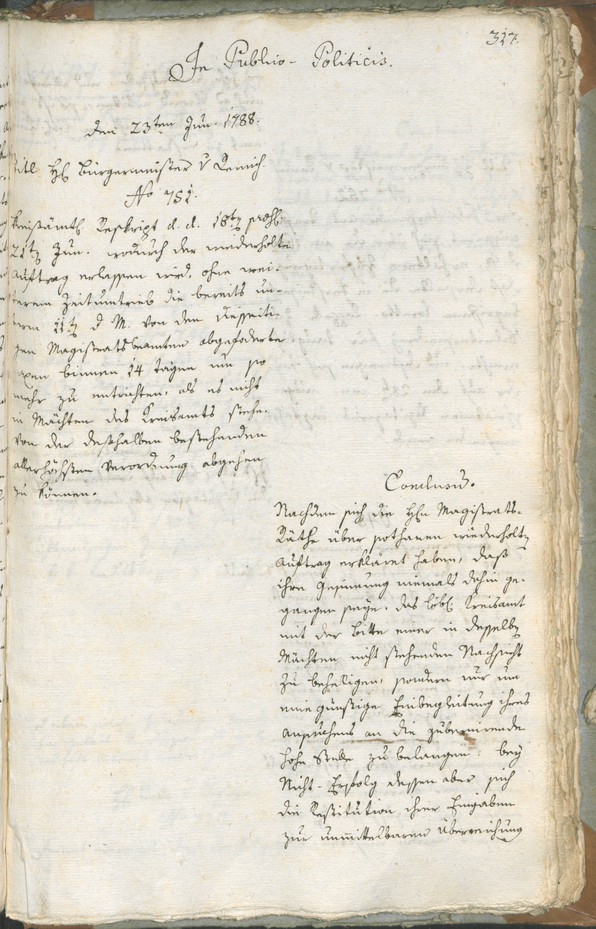 317.
In Publico-Politicis.
den 23ten Jun. 1788.
Titl H. Bürgermeister v
No 751.
Kreisämtl. Reskript d. d. 18t
21t Jun. wodurch der wiederholte
Auftrag erlassen wird, ohne wei-
terem Zeitumtrieb die bereits un-
term 11t d. M. von den disseiti-
gen Magistratsbeamten abgeforderte
Taxen binnen 14 tägen um so
mehr zu entrichten, als es nicht
in Mächten des Kreisamts stehe,
von der desthalben bestehenden
allerhöchsten Verordnung abgehen
zu können.
Conclusum.
Nachdem sich die Hrn Magistrats-
Räthe über sothanen wiederholten
Auftrag erkläret haben, daß
ihre Gesinnung niemals dahin ge-
gangen seye, das löbl. Kreisamt
mit der Bitte einer in desselben
Mächten nicht stehenden Nachsicht
zu beheligen, sondern nur um
eine günstige Einbegleitung ihres
Ansuchens an die
hohe Stelle zu belangen: bey
Nicht-Erfolg dessen aber sich
die Restitution ihrer Eingaben
zur unmittelbaren Überreichung